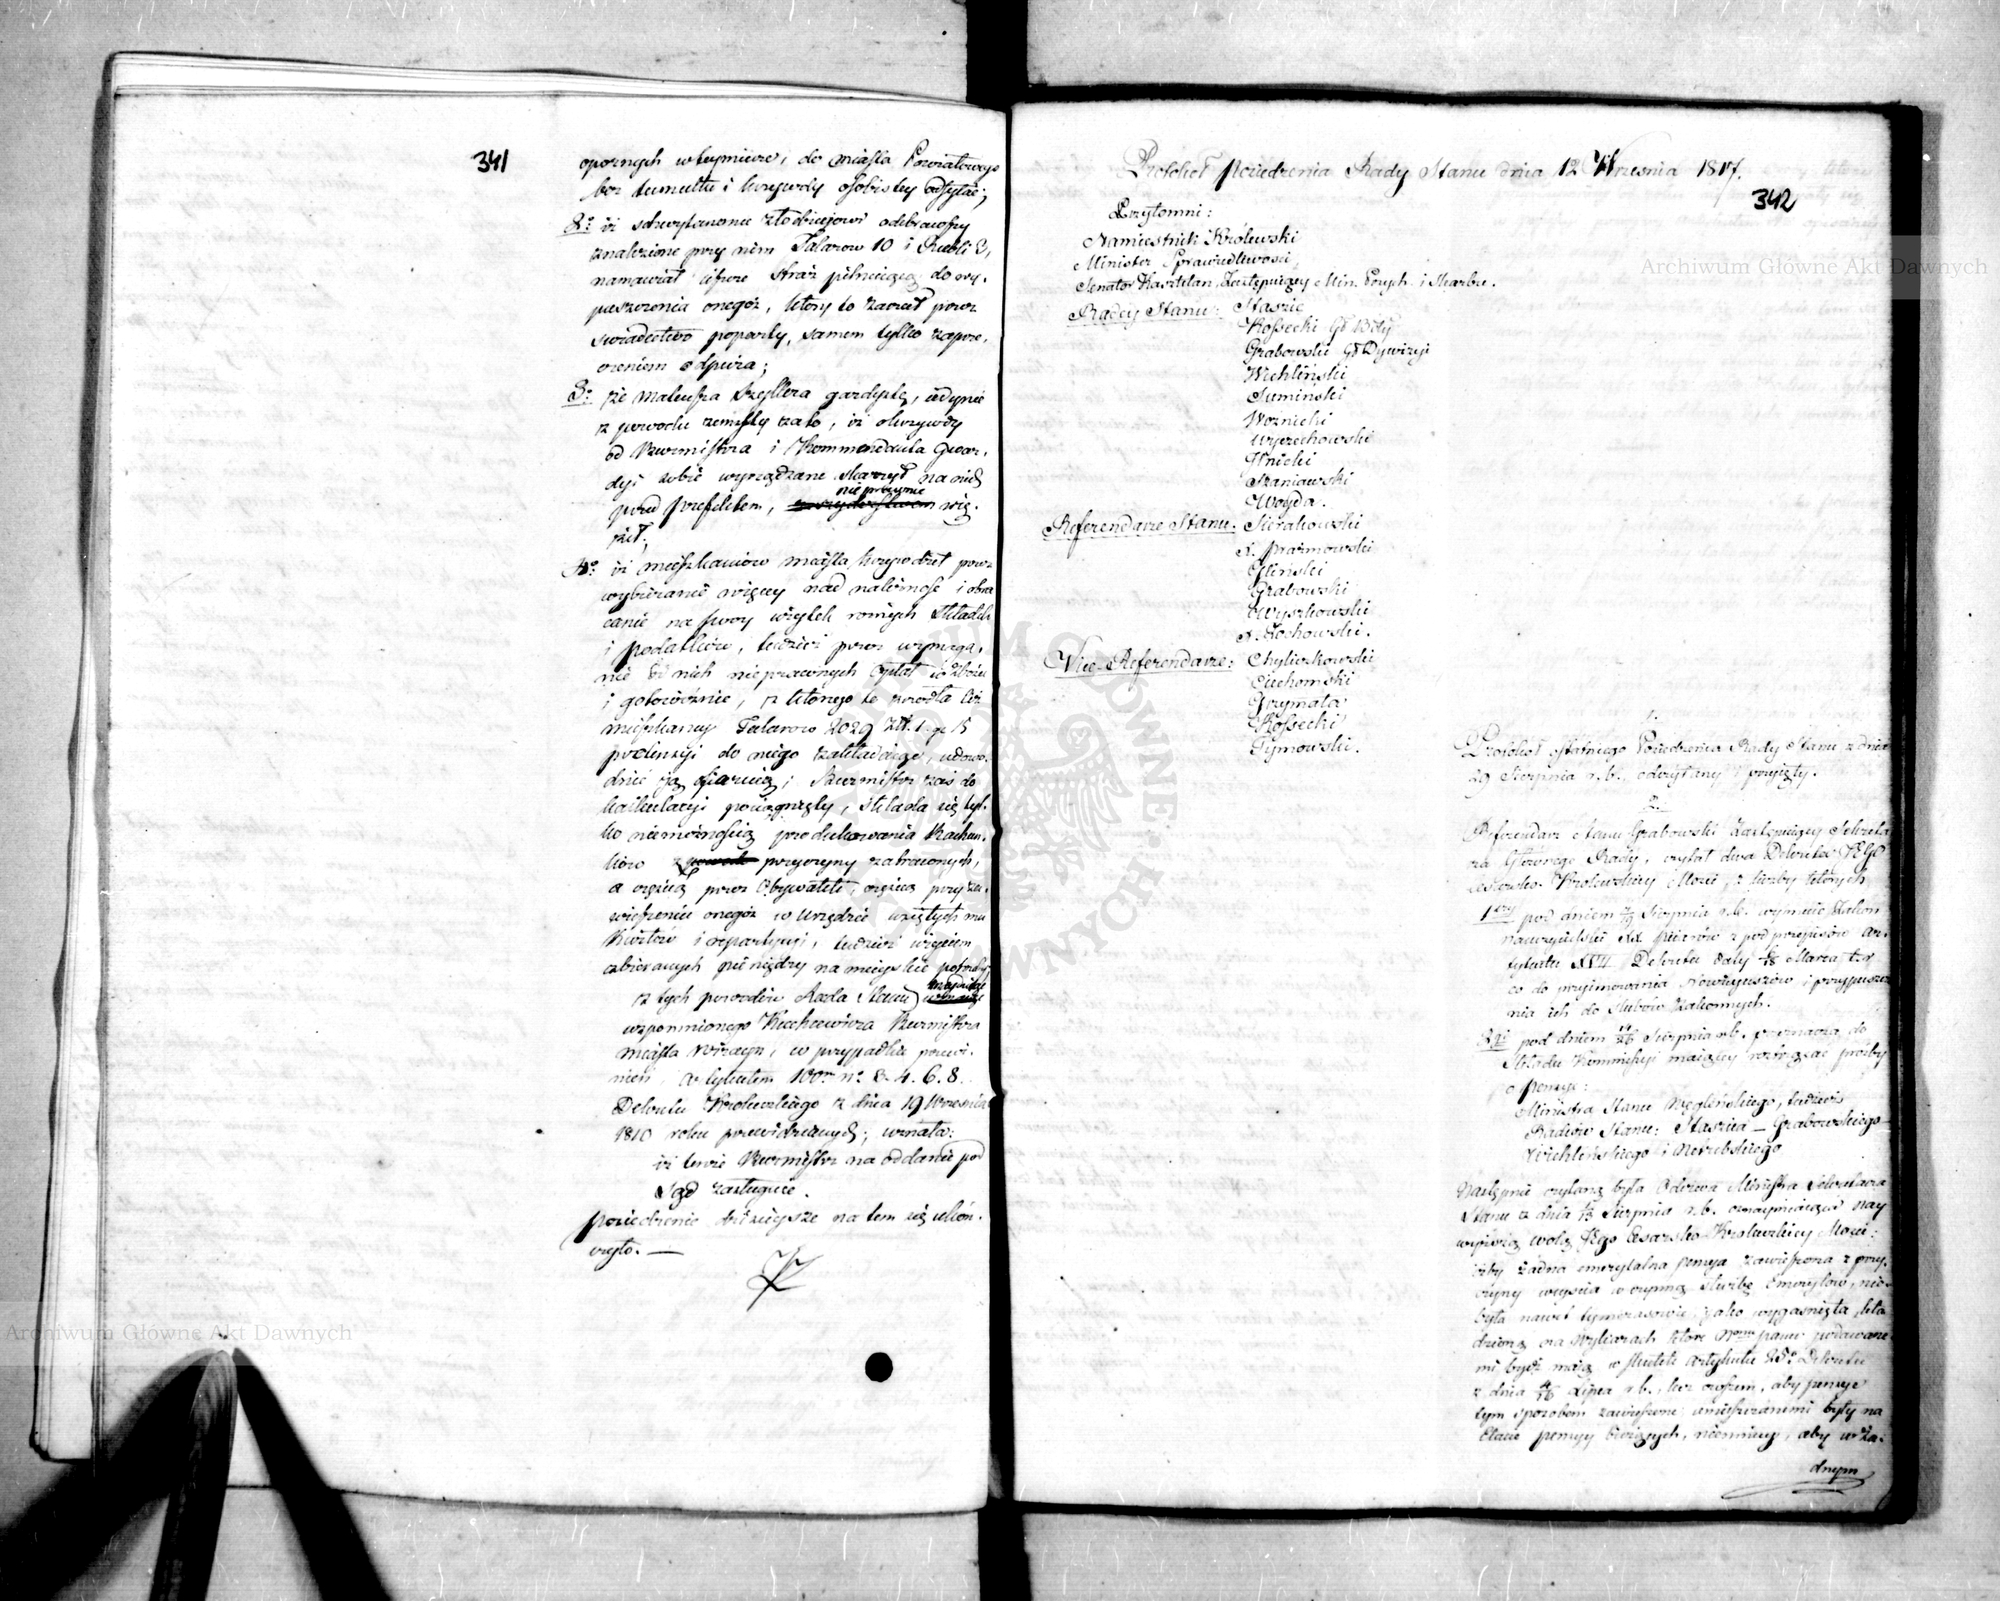 341
opornych w teymierze, do miasta Powiatowego
bez tumultu i krzywdy osobistey odsyłać;
2o iż schwytanemu złodziejowi odebrawszy
znalezione przy nim Talarow 10 i Rubli 3,
namawiał straż pilnującą do wy-
puszczenia onegoż, ktory to zarzut przez
swiadectwo poparty, samem tylko zaprze-
czeniem odpiera;
3o że Mateusza gardystę, iedynie
z powodu zemsty za to, iż okrzywdy
od Burmistrza i Kommendanta Gwar-
dyi sobie wyrządzane skarżył na nich
przed Prefektem, nieprzyiaznie wię-
ził;
4o iż mieszkańców miasta krzywdził przez
wybieranie więcey nad należność i obra-
canie na swoy użytek roznych składek
i podatków, tudzież przez wymaga-
nie od nich nieprawnych opłat w zbożu
i gotowiźnie, z którego to źrodła ciż
mieszkańcy Talarow 2029 zł. 1 gr 15
pretensyi do niego zakładaiąc, udowo-
dnić ią ofiaruią; Burmistrz zaś do
kalkulacyi pociągnięty, składa się tyl-
ko niemożnością produkowania Rachun-
ków z przyczyny zatraconych,
a częścią przez Obywateli, częścią przy za-
wieszeniu onegoż w Urzędzie wziętych mu
Kwitów i repartycyi, tudzież użyciem
zbieranych pieniędzy na mieyskie potrzeby
z tych powodów Rada Stanu znayduiąc
wspomnionego Burmistrza
miasta w przypadku powi-
nień, Artykułem 100m no 3. 4. 6. 8.
Dekretu Krolewskiego z dnia 19 Września
1810 roku przewidzianych; uznała:
iż tenże Burmistrz na oddanie pod
Sąd zasługuie.
Posiedzenie dzisieysze na tem się ukoń-
czyło. —
Protokoł Posiedzenia Rady Stanu dnia 12 Września 1817.
342
Przytomni:
Namiestnik Królewski
Minister Sprawiedliwości
Senator Kasztelan, Zastępuiący Min. Przych. i Skarbu.
Radcy Stanu: Staszic
Kossecki Gł Bdy
Grabowski Gł Dywizyi
Wichliński
Sumiński
Woźnicki
Wyczechowski
Gnicki
Staniawski
Woyda.
Referendarze Stanu. Sierakowski
X. Prażmowski
Gliński
Grabowski
Wyszkowski
X. Łochowski.
Vice-Referendarze: Chyliczkowski
Ciechomski
Grzymała
Kossecki
Tymowski.
1.
Protokoł ostatniego Posiedzenia Rady Stanu z dnia
29 Sierpnia r. b. odczytany i przyięty.
2.
Referendarz Stanu Grabowski Zastępuiący Sekreta-
rza Głównego Rady, czytał dwa Dekreta JEGO
Cesarsko-Krolewskiey Mości, z liczby których
1szy pod dniem 7/19 Sierpnia r. b. wyimuie Zakon
nauczycielski XX. Piiarów z pod przepisów ar-
tykułu XVII Dekretu Daty 6/18 Marca t. r.
co do przyimowania Nowicyuszów i przypuszcze-
nia ich do ślubów Zakonnych.
2gi pod dniem 14/26 Sierpnia r. b. przeznacza do
składu Kommissyi maiącey roztrząsać prośby
o Pensye:
Ministra Stanu Węgleńskiego, tudzież
Radców Stanu: Staszica – Grabowskiego –
Wichlińskiego i Nakwaskiego
Następnie czytaną była Odezwa Ministra Sekretarza
Stanu z dnia Sierpnia r. b. oznaymuiąca nay-
wyższą wolą Jego Cesarsko-Krolewskiey Mości:
iżby żadna emerytalna pensya zawieszona z przy-
czyny weyścia w czynną służbę Emerytów, nie
była nawet tymczasowie, iako wygasnięta kła-
dzioną na wykazach które Nam panu podawane-
mi bydź maią w skutek artykułu 25o Dekretu
z dnia 4/16 Lipca r. b., lecz owszem, aby pensye
tym sposobem zawieszone umieszczanemi były na
Etacie pensyy bieżących, niemniey, aby w ża-
dnym
Archiwum Główne Akt Dawnych
Archiwum Główne Akt Dawnych